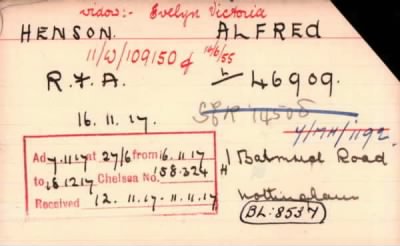 widow:- Evelyn Victoria
HENSON. ALFRED
11/W/109150 14/6/55
R.F.A. L 46909.
16.11.17.
4/MH/1192.
Ad 7.11.17 at 27/6 from 16.11.17
to 18.12.17 Chelsea No. 158.324
Received 12.11.17-11.11.17
41 Balmual Road
Nottingham
BL: 8537